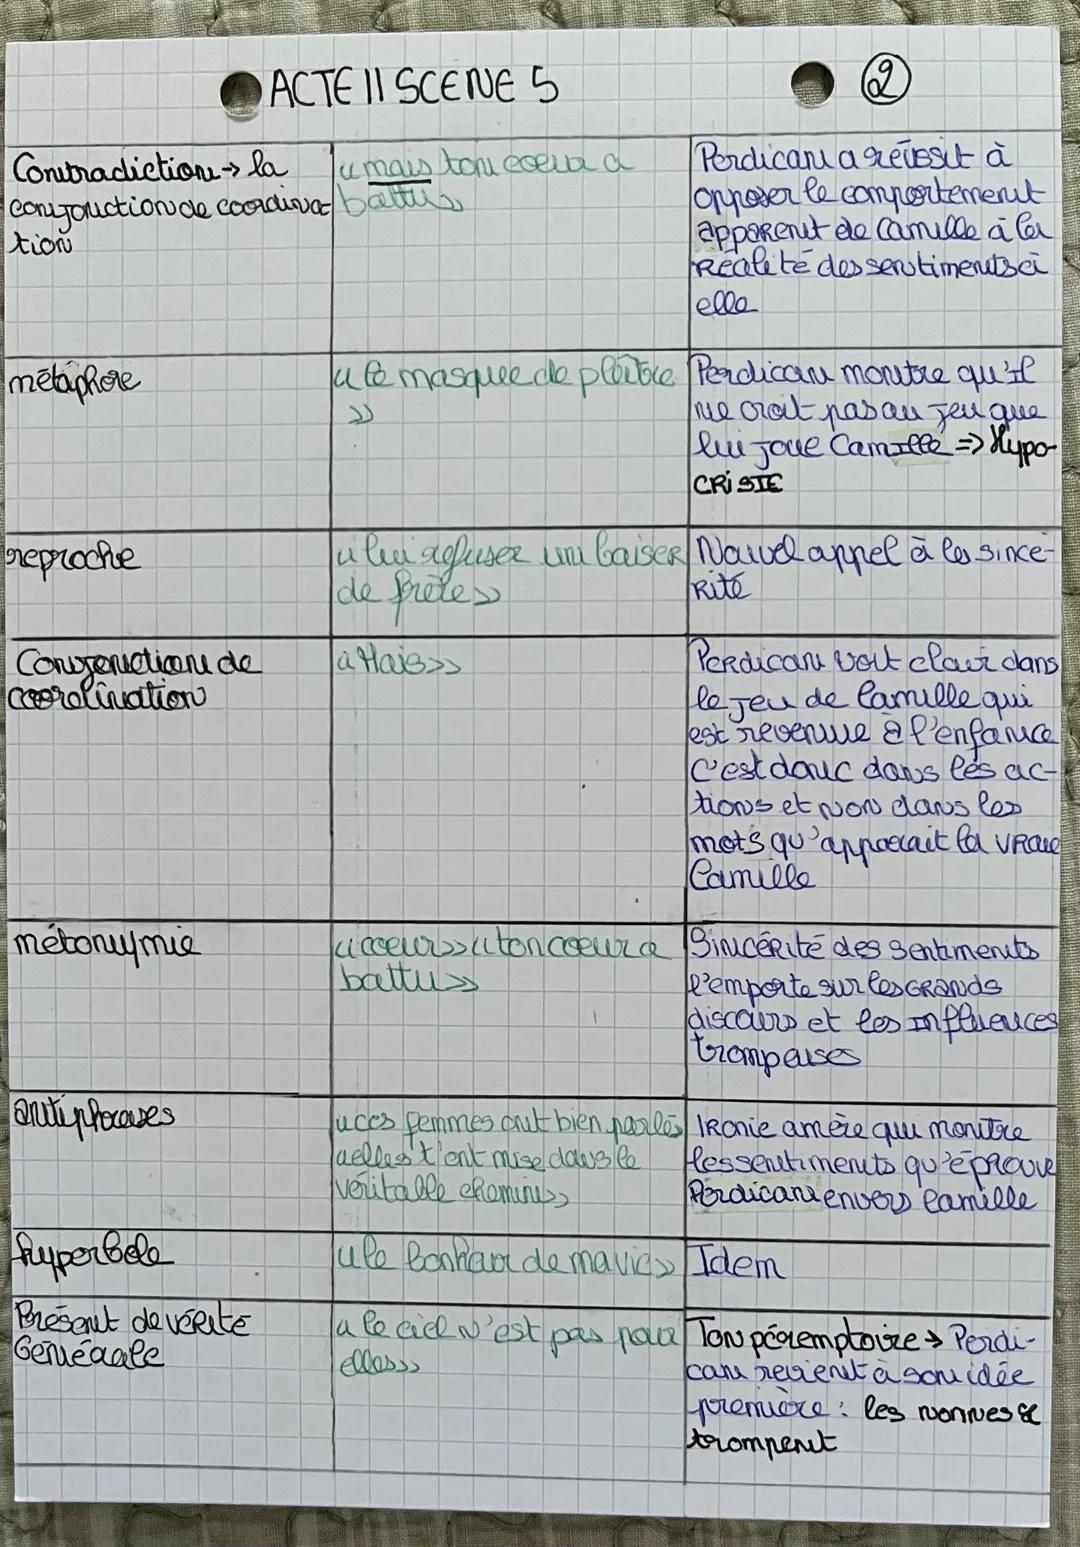 ACTE II SCENE 5
2
Contradiction → la
conjonction de coordina
tion
« mais ton coeur a
battu »
Perdican a réussit à
opposer le comportement
apparent de Camille à la
réalité des sentiments
elle
métaphore
« le masque de plâtre
»
Perdican montre qu'il
ne croit pas au jeu que
lui joue Camille => Hypo-
CRISIE
reproche
« lui refuser un baiser
de frère »
Nouvel appel à la since-
rité
Conjonction de
coordination
« Mais »
Perdican voit clair dans
le jeu de Camille qui
est revenue à l'enfance
C'est donc dans les ac-
tions et non dans les
mots qu'apparait la vraie
Camille
métonymie
« coeur » « ton coeur a
battu »
Sincérité des sentiments
l'emporte sur les GRANDS
discours et les influences
trompeuses
antiphrases
« ces femmes ont bien parlés
« elles t'ont mise dans le
véritable chemin »
Ironie amère qui montre
les sentiments qu'éprouve
Perdican envers Camille
hyperbole
« le bonheur de ma vie »
Idem
Présent de vérité
Générale
« le ciel n'est pas pour
elles »
Ton péremptoire → Perdi-
can revient à son idée
première : les nonnes se
trompent